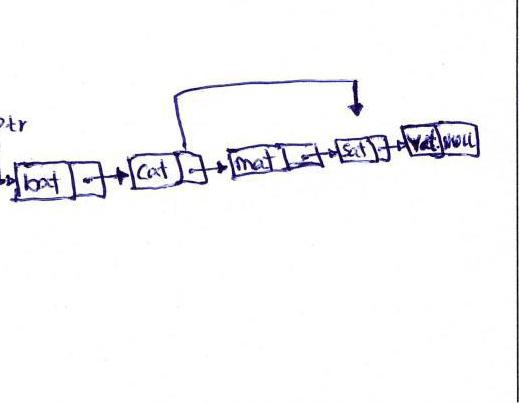 ptr
bat cat mat sat vat NULL